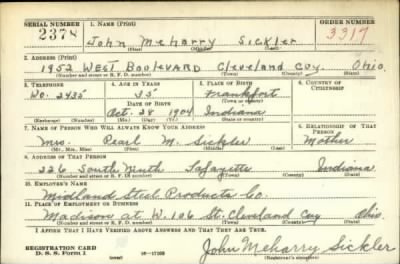 SERIAL NUMBER 1. NAME (Print) ORDER NUMBER
2378 John Meharry Sickler 3317
(First) (Middle) (Last)
2. ADDRESS (Print)
1952 West Boulevard Cleveland Cuy. Ohio
(Number and street or R. F. D. number) (Town) (County) (State)
3. TELEPHONE 4. AGE IN YEARS 5. PLACE OF BIRTH 6. COUNTRY OF CITIZENSHIP
Wo. 2435 35 Frankfort
DATE OF BIRTH (Town or county)
Oct. 28 1904 Indiana
(Exchange) (Number) (Mo.) (Day) (Yr.) (State or country)
7. NAME OF PERSON WHO WILL ALWAYS KNOW YOUR ADDRESS 8. RELATIONSHIP OF THAT PERSON
Mrs. Pearl M. Sickler Mother
(Mr., Mrs., Miss) (First) (Middle) (Last)
9. ADDRESS OF THAT PERSON
226 South Ninth Lafayette Indiana
(Number and street or R. F. D. number) (Town) (County) (State)
10. EMPLOYER'S NAME
Midland Steel Products Co.
11. PLACE OF EMPLOYMENT OR BUSINESS
Madison at W. 106 St. Cleveland Cuy Ohio
(Number and street or R. F. D. number) (Town) (County) (State)
I AFFIRM THAT I HAVE VERIFIED ABOVE ANSWERS AND THAT THEY ARE TRUE.
REGISTRATION CARD John Meharry Sickler
D. S. S. Form 1 (over) (Registrant's signature)